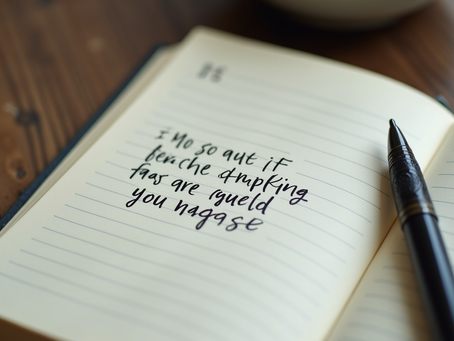 I Mo so aut iF
fenche &mpking
faas are rqueld
you nagase